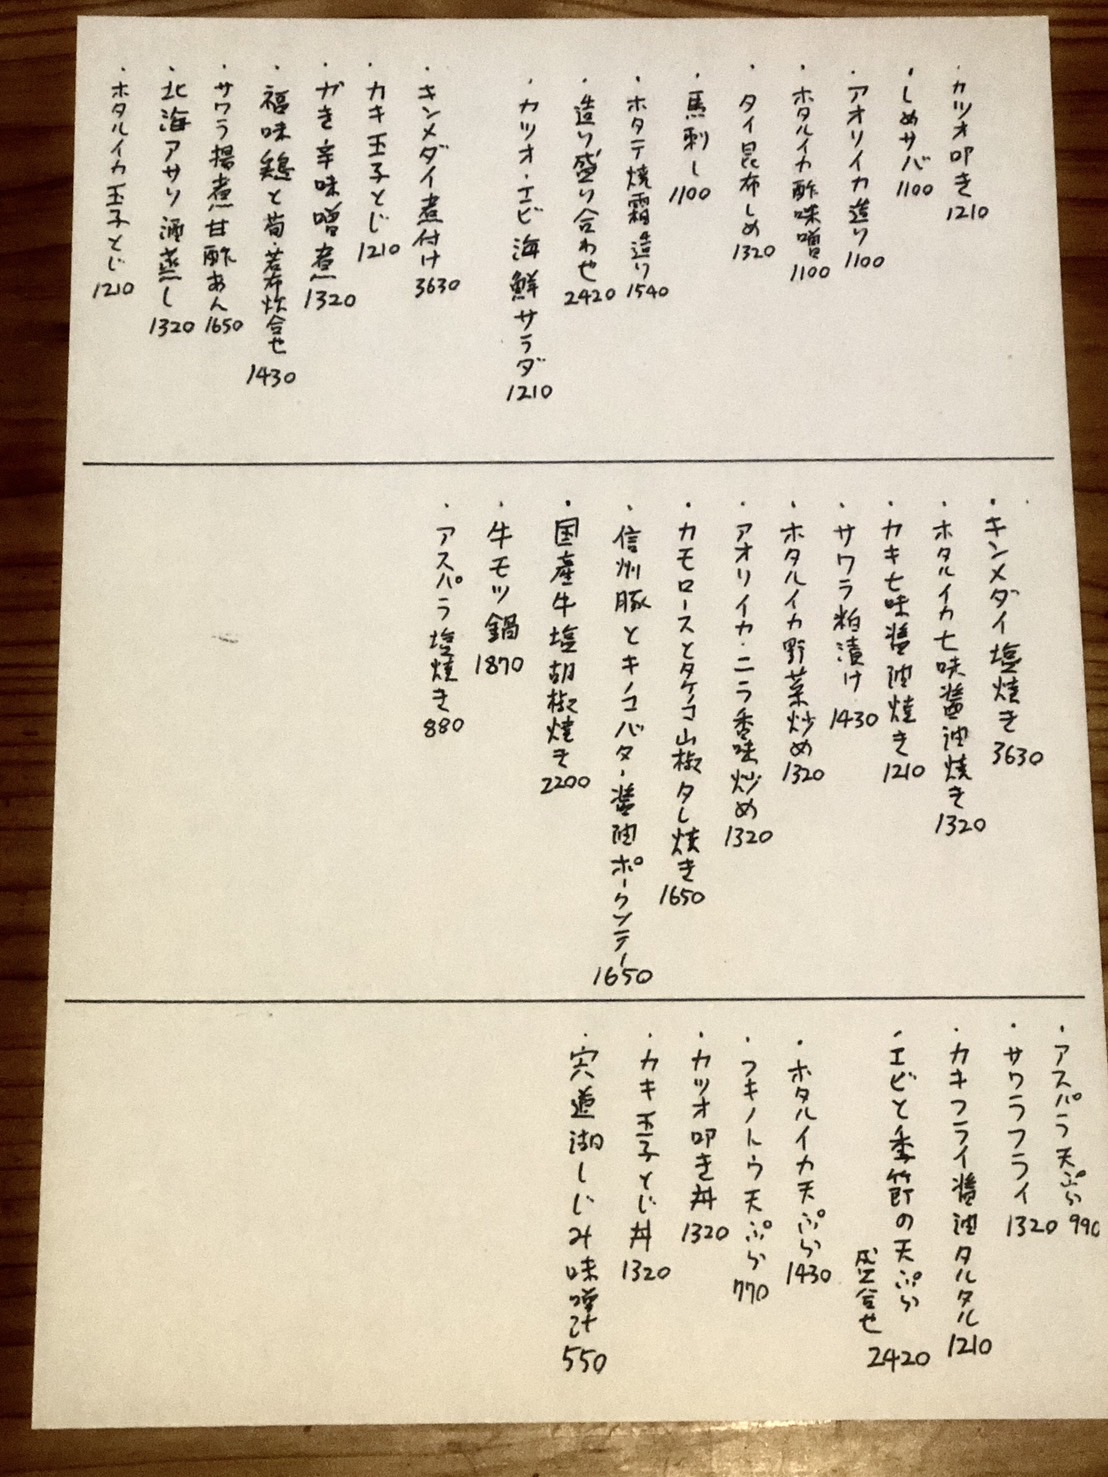 ・カツオ叩き 1210
・しめサバ 1100
・アオリイカ造り 1100
・ホタルイカ酢味噌 1100
・タイ昆布しめ 1320
・馬刺し 1100
・ホタテ焼霜造り 1540
・造り盛り合わせ 2420
・カツオ・エビ海鮮サラダ 1210
・キンメダイ煮付け 3630
・カキ玉子とじ 1210
・カキ辛味噌煮 1320
・福味鶏と筍・若布炊合せ 1430
・サワラ揚煮甘酢あん 1650
・北海アサリ酒蒸し 1320
・ホタルイカ玉子とじ 1210
・キンメダイ塩焼き 3630
・ホタルイカ七味醤油焼き 1320
・カキ七味醤油焼き 1210
・サワラ粕漬け 1430
・ホタルイカ野菜炒め 1320
・アオリイカ・ニラ香味炒め 1320
・カモロースとタケノコ山椒タレ焼き 1650
・信州豚とキノコバター醤油ポークソテー 1650
・国産牛塩胡椒焼き 2200
・牛モツ鍋 1870
・アスパラ塩焼き 880
・アスパラ天ぷら 990
・サワラフライ 1320
・カキフライ醤油タルタル 1210
・エビと季節の天ぷら
盛合せ 2420
・ホタルイカ天ぷら 1430
・フキノトウ天ぷら 770
・カツオ叩き丼 1320
・カキ玉子とじ丼 1320
・宍道湖しじみ味噌汁 550